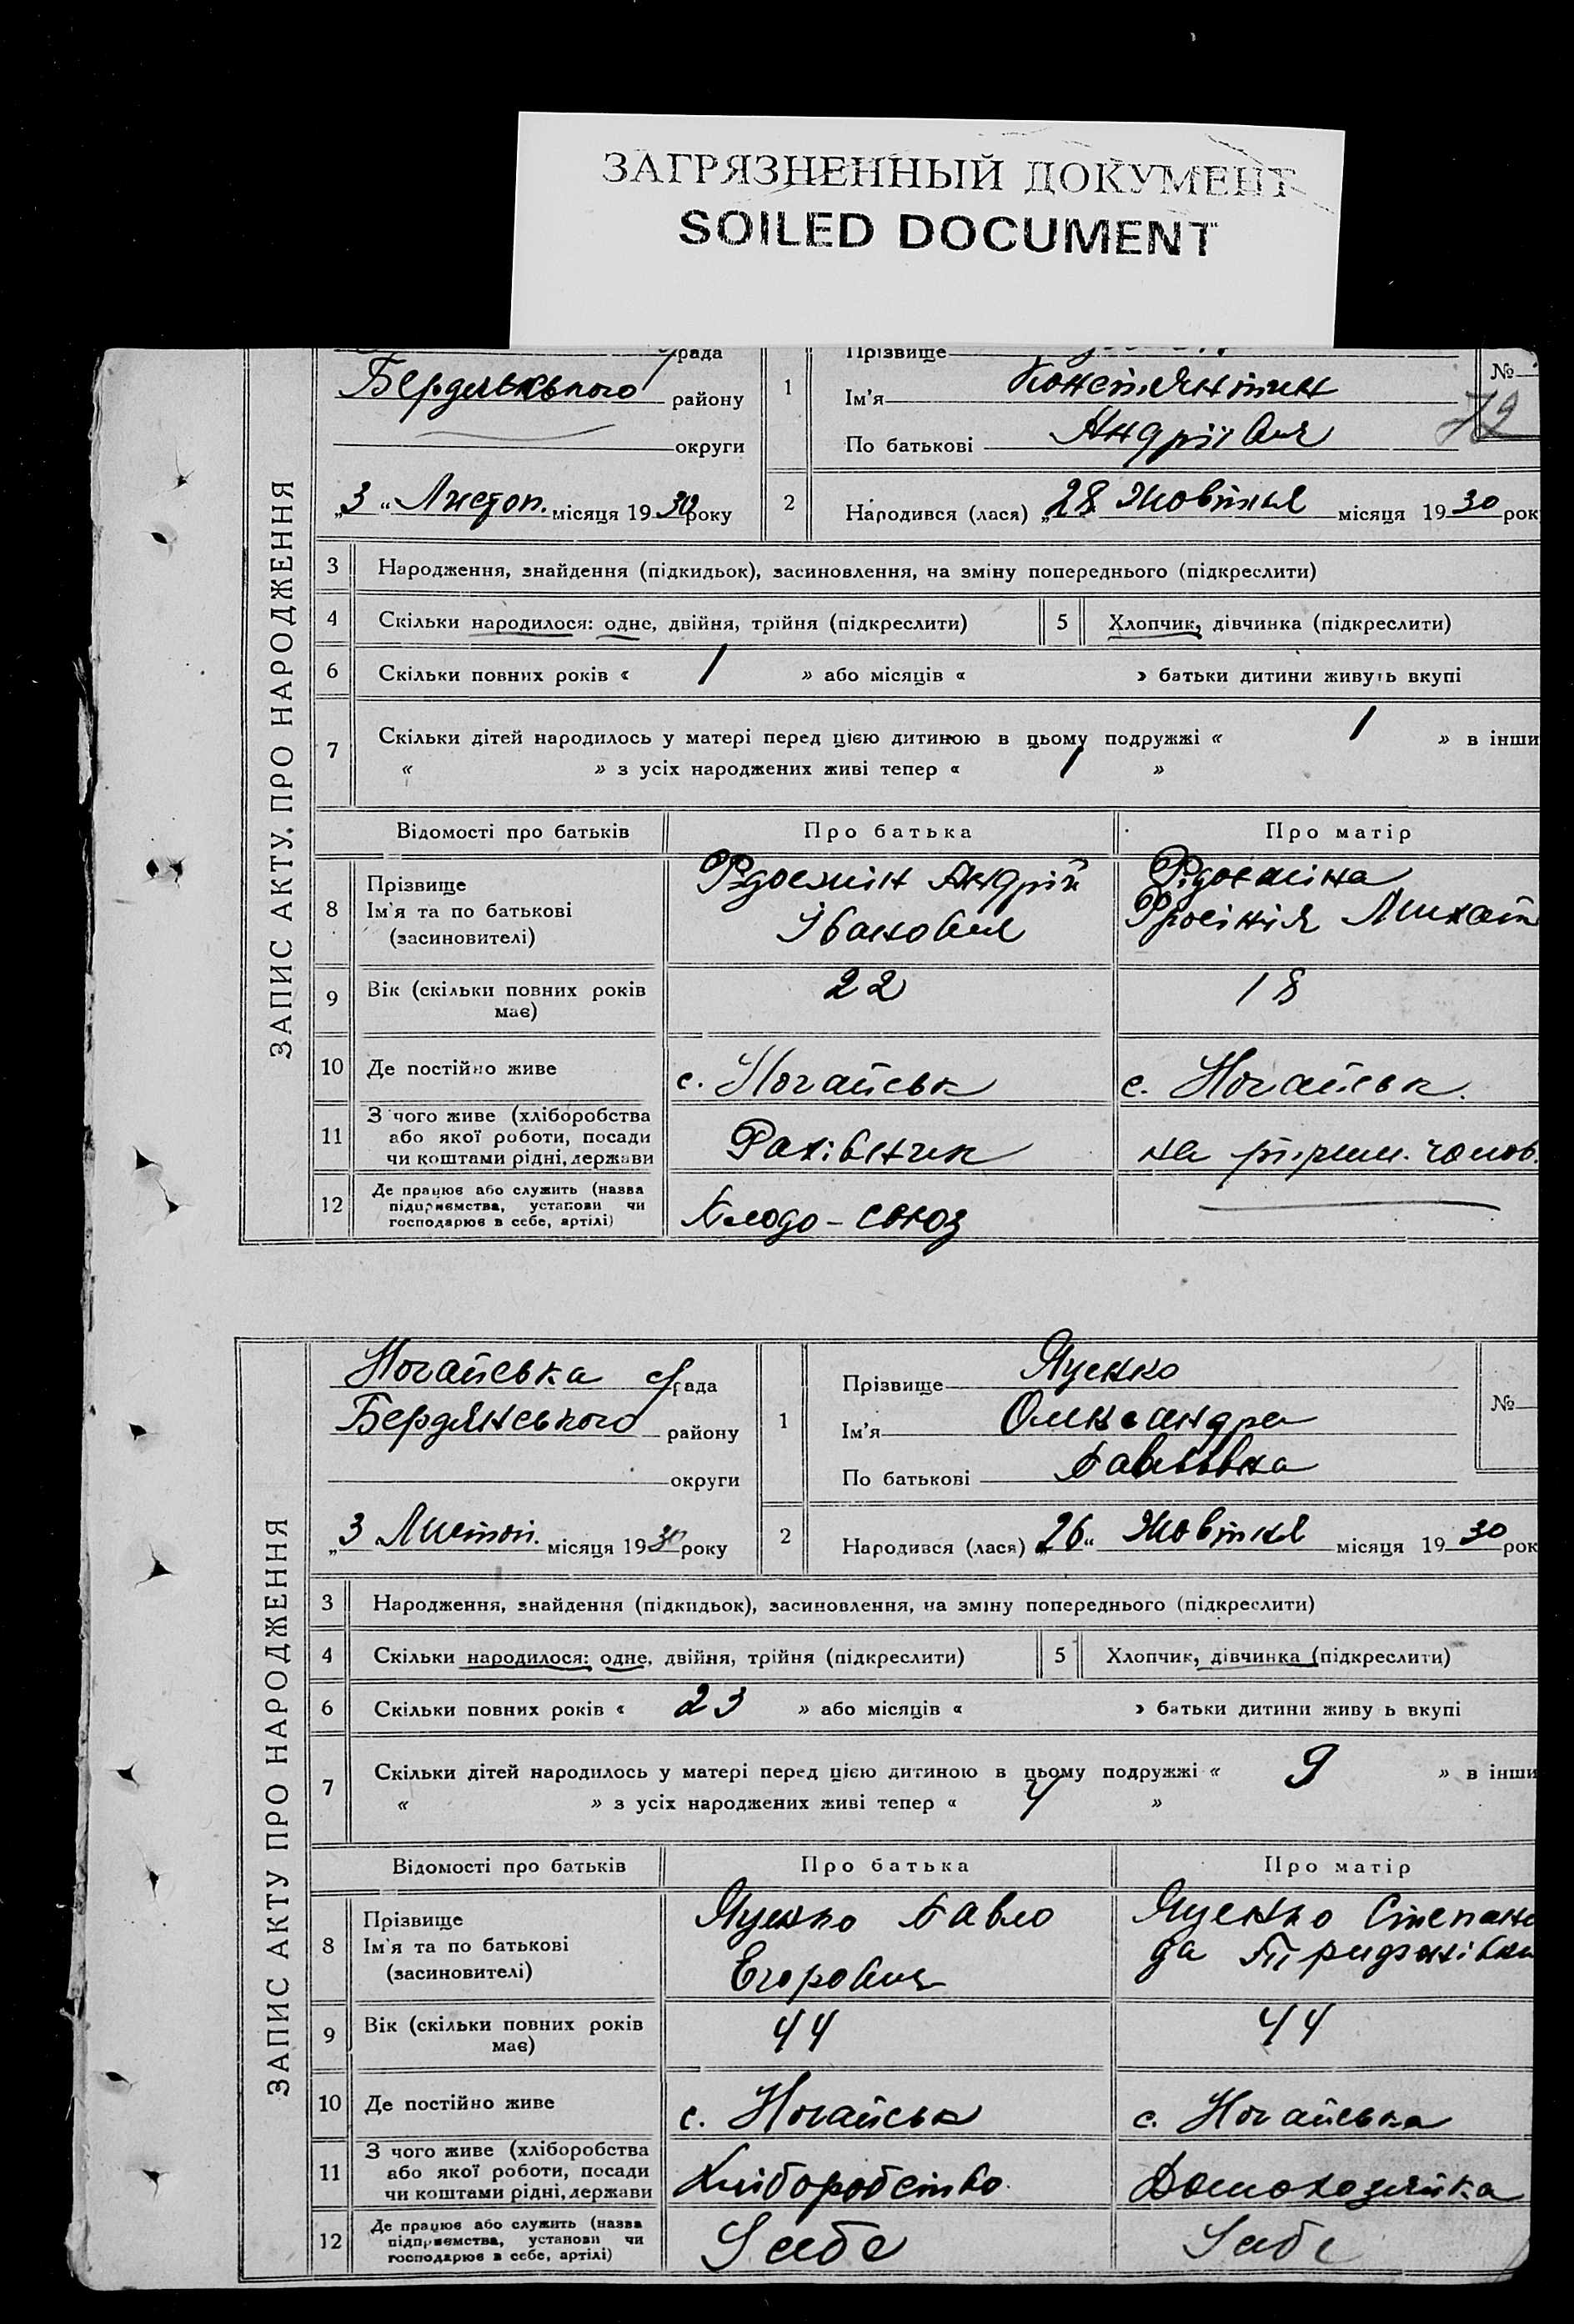 ЗАГРЯЗНЕННЫЙ ДОКУМЕНТ
SOILED DOCUMENT
ЗАПИС АКТУ ПРО НАРОДЖЕННЯ
рада
Бердянського району
округи
„3“ Листоп. місяця 1930 року
1
Прізвище
Ім'я Констянтин
По батькові Андрійович
№
72
2
Народився (лася) „28 Жовтня місяця 1930 рок
3 Народження, знайдення (підкидьок), засиновлення, на зміну попереднього (підкреслити)
4 Скільки народилося: одне, двійня, трійня (підкреслити)
5 Хлопчик, дівчинка (підкреслити)
6 Скільки повних років « 1 » або місяців « » батьки дитини живуть вкупі
7 Скільки дітей народилось у матері перед цією дитиною в цьому подружжі « 1 » в інши
« » з усіх народжених живі тепер « 1 »
Відомості про батьків Про батька Про матір
8 Прізвище
Ім'я та по батькові
(засиновителі)
Андрій
Іванович
Фросінія Михайл
9 Вік (скільки повних років має) 22 18
10 Де постійно живе с. Ногайськ с. Ногайськ.
11 З чого живе (хліборобства
або якої роботи, посади
чи коштами рідні, держави
Рахівничк
на утрим. чолов.
12 Де працює або служить (назва
підприємства, установи чи
господарює в себе, артілі)
Плодо-союз
ЗАПИС АКТУ ПРО НАРОДЖЕННЯ
Ногайська с/рада
Бердянського району
округи
„3 Листоп. місяця 1930 року
1
Прізвище Яценко
Ім'я Олександра
По батькові Павлівна
№
2
Народився (лася) „26“ Жовтня місяця 1930 рок
3 Народження, знайдення (підкидьок), засиновлення, на зміну попереднього (підкреслити)
4 Скільки народилося: одне, двійня, трійня (підкреслити)
5 Хлопчик, дівчинка (підкреслити)
6 Скільки повних років « 23 » або місяців « » батьки дитини живу ь вкупі
7 Скільки дітей народилось у матері перед цією дитиною в цьому подружжі « 9 » в інши
« » з усіх народжених живі тепер « 4 »
Відомості про батьків Про батька Про матір
8 Прізвище
Ім'я та по батькові
(засиновителі)
Яценко Павло
Егорович
Яценко Степани
да
9 Вік (скільки повних років має) 44 44
10 Де постійно живе с. Ногайськ с. Ногайська
11 З чого живе (хліборобства
або якої роботи, посади
чи коштами рідні, держави
Хліборобство
Домохозяйка
12 Де працює або служить (назва
підприємства, установи чи
господарює в себе, артілі)